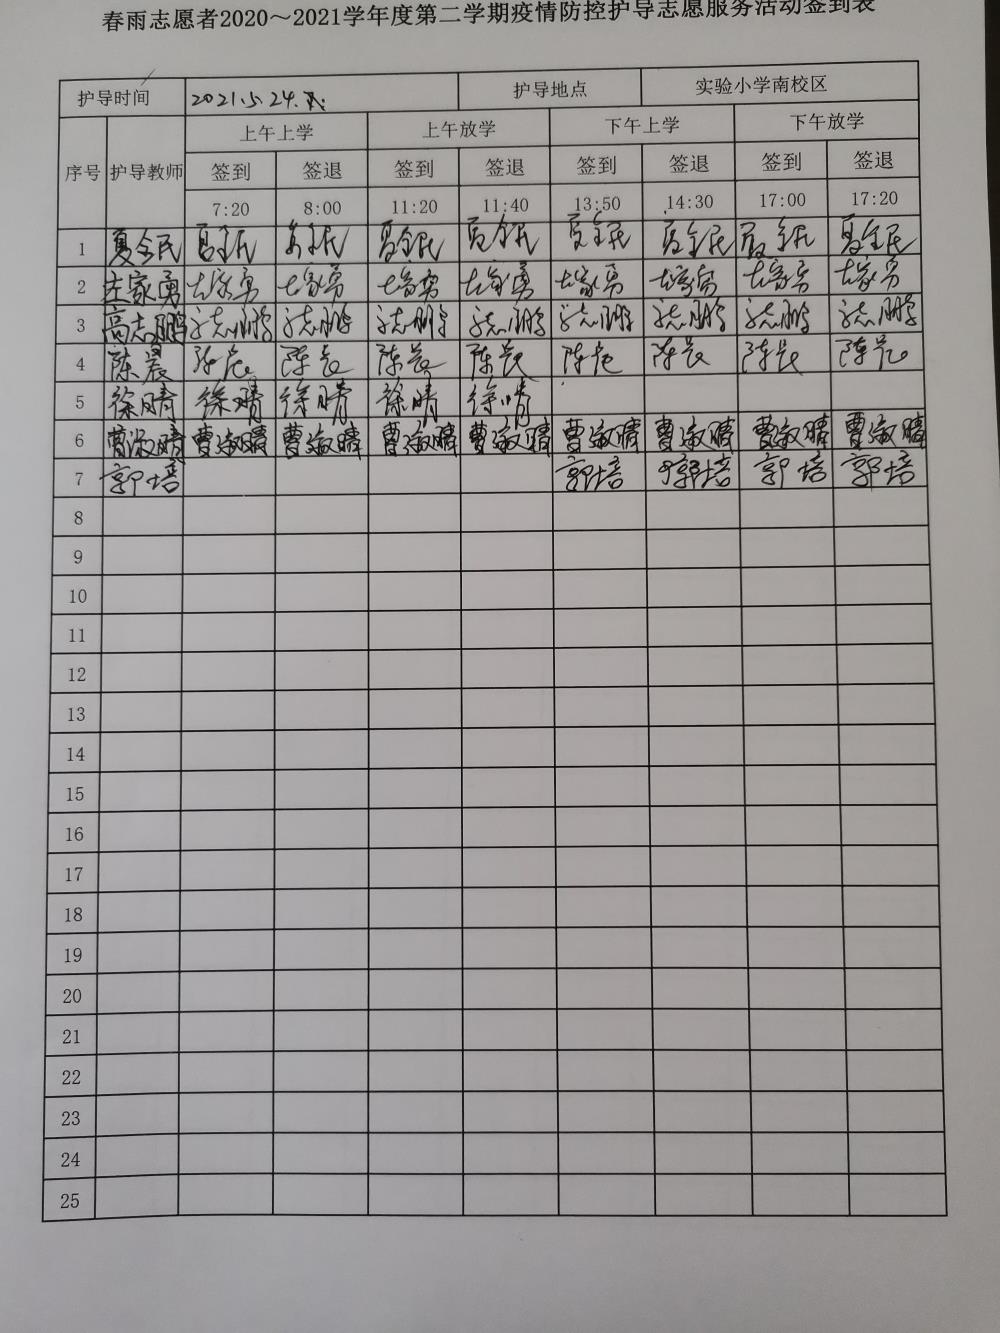 春雨志愿者2020～2021学年度第二学期疫情防控护导志愿服务活动签到表
护导时间 2021.5.24. 护导地点 实验小学南校区
序号 护导教师 上午上学 上午放学 下午上学 下午放学
签到 签退 签到 签退 签到 签退 签到 签退
7:20 8:00 11:20 11:40 13:50 14:30 17:00 17:20
1 夏全民 夏全民 夏全民 夏全民 夏全民 夏全民 夏全民 夏全民 夏全民
2 左家勇 左家勇 左家勇 左家勇 左家勇 左家勇 左家勇 左家勇 左家勇
3 高志鹏 高志鹏 高志鹏 高志鹏 高志鹏 高志鹏 高志鹏 高志鹏 高志鹏
4 陈晨 陈晨 陈晨 陈晨 陈晨 陈晨 陈晨 陈晨 陈晨
5 徐晴 徐晴 徐晴 徐晴 徐晴
6 曹淑晴 曹淑晴 曹淑晴 曹淑晴 曹淑晴 曹淑晴 曹淑晴 曹淑晴 曹淑晴
7 郭培 郭培 郭培 郭培 郭培
8
9
10
11
12
13
14
15
16
17
18
19
20
21
22
23
24
25